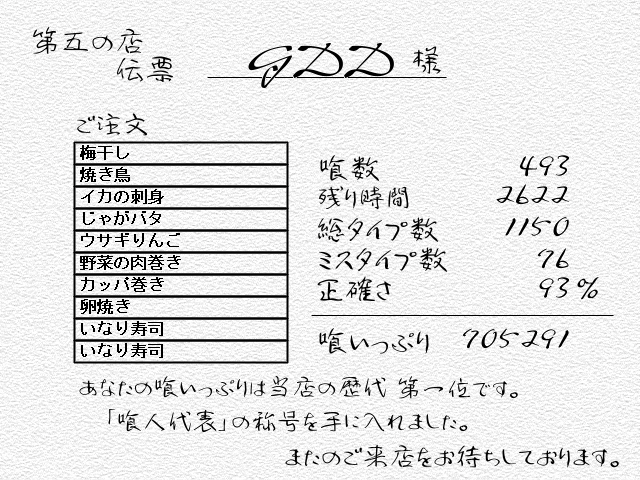 第五の店
伝票 GDD 様
ご注文
梅干し
焼き鳥
イカの刺身
じゃがバタ
ウサギりんご
野菜の肉巻き
カッパ巻き
卵焼き
いなり寿司
いなり寿司
喰数 493
残り時間 2622
総タイプ数 1150
ミスタイプ数 76
正確さ 93%
喰いっぷり 705291
あなたの喰いっぷりは当店の歴代 第一位です。
「喰人代表」の称号を手に入れました。
またのご来店をお待ちしております。